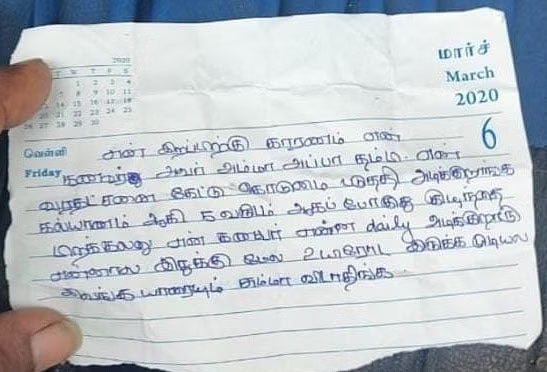 2020
T W T F S
1 2 3 4
8 9 10 11
14 15 16 17 18
26 27 28 29 30
மார்ச்
March
2020
6
வெள்ளி
Friday
என் இறப்பிற்கு காரணம் என்
கணவர் அவர் அம்மா அப்பா தம்பி என்
வரதட்சனை கேட்டு கொடுமை படுத்தி அடிக்கிறாங்க
கல்யாணம் ஆகி வருசம் ஆகப் போகுது குழந்தை
என் கணவர் என்ன daily அடிக்கிறாரு
என்னால இதுக்கு மேல உயிரோட இருக்க முடியல
இவங்க யாரையும் சும்மா விடாதிங்க.